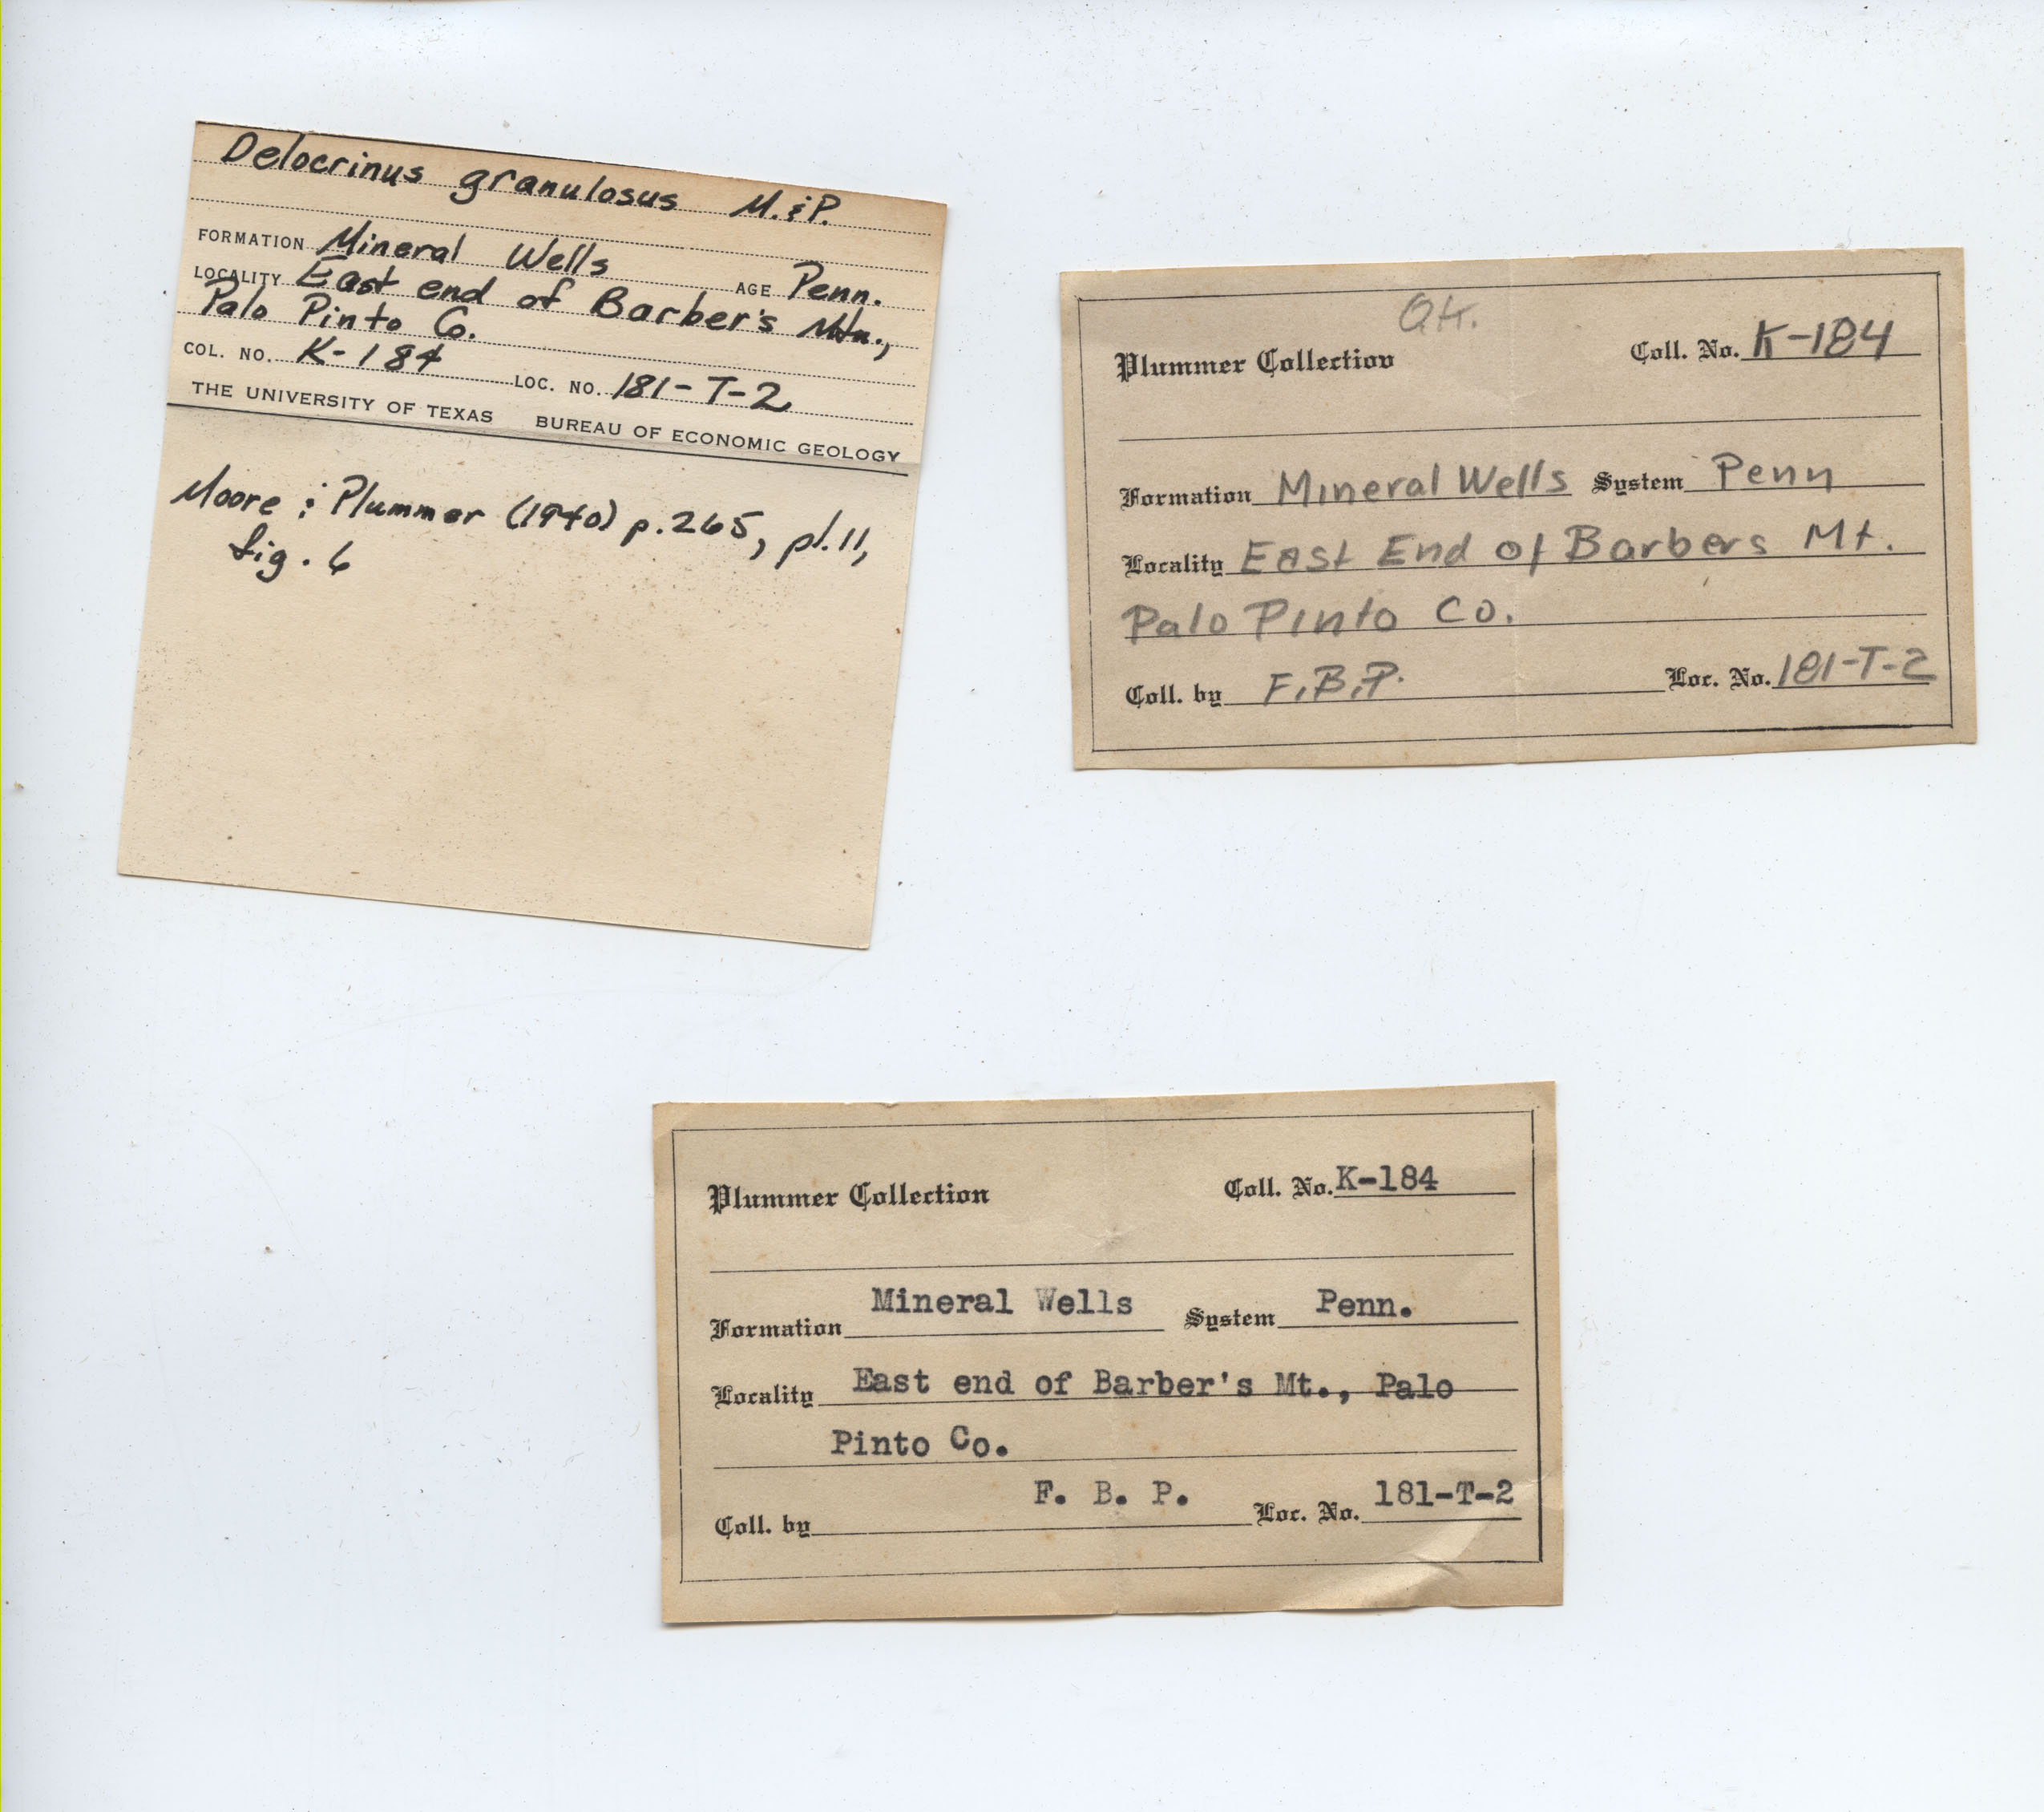 Delocrinus granulosus M. & P.
FORMATION Mineral Wells AGE Penn.
LOCALITY East end of Barber's Mtn.,
Palo Pinto Co.
COL. NO. K-184 LOC. NO. 181-T-2
THE UNIVERSITY OF TEXAS BUREAU OF ECONOMIC GEOLOGY
Moore & Plummer (1940) p.265, pl.11,
fig. 6
O.K.
Plummer Collection Coll. No. K-184
Formation Mineral Wells System Penn
Locality East End of Barbers Mt.
Palo Pinto Co.
Coll. by F.B.P. Loc. No. 181-T-2
Plummer Collection Coll. No. K-184
Formation Mineral Wells System Penn.
Locality East end of Barber's Mt., Palo
Pinto Co.
Coll. by F. B. P. Loc. No. 181-T-2